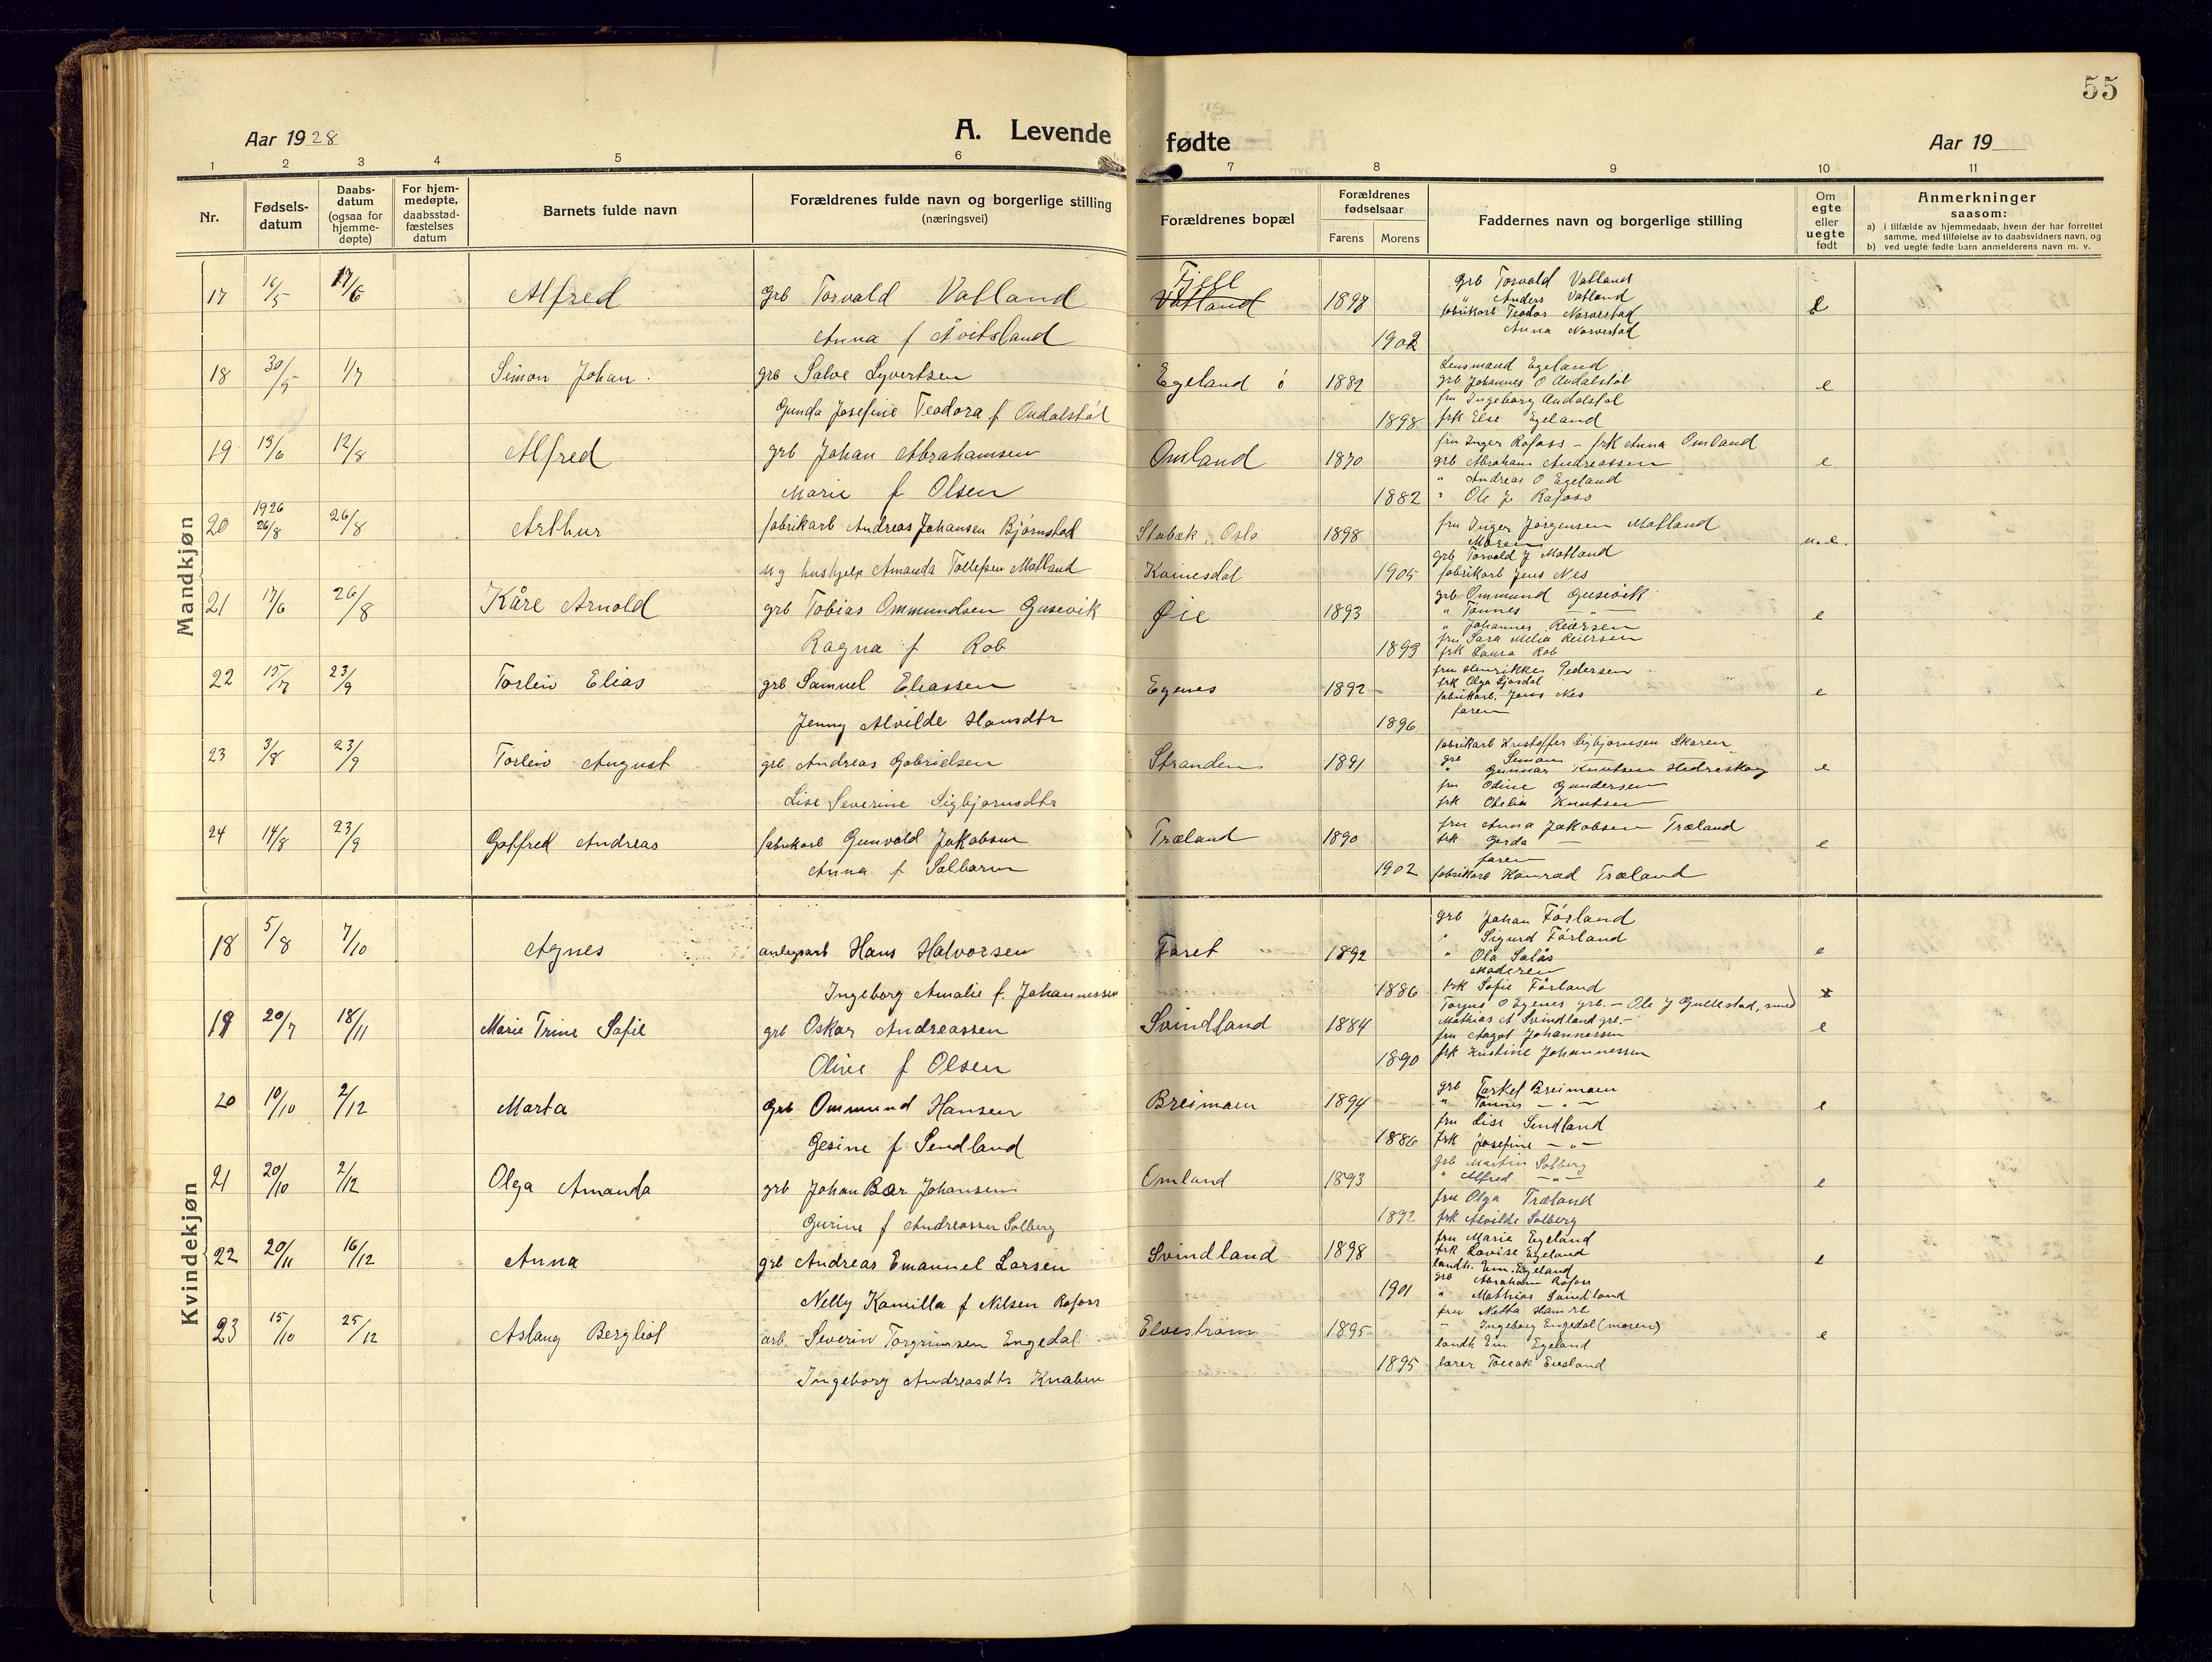 55
Aar 1928
A. Levende fødte
Aar 19
1 2 3 4 5 6 7 8 9 10 11
Nr.
Fødsels-datum
Daabs-datum (ogsaa for hjemme-døpte)
For hjem-medøpte, daabsstad-fæstelses datum
Barnets fulde navn
Forældrenes fulde navn og borgerlige stilling
(næringsvei)
Forældrenes bopæl
Forældrenes fødselsaar
Farens Morens
Faddernes navn og borgerlige stilling
Om egte eller uegte født
Anmerkninger
saasom:
a) i tilfælde av hjemmedaab, hvem der har forrettet samme, med tilføielse av to daabsvidners navn, og
b) ved uegte fødte barn anmelderens navn m. v.
Mandkjøn
17 16/5 17/6 Alfred grb Torvald Vatland Fjell Vatland 1898 e
Anna f Åvitsland 1902
grb Torvald Vatland
" Anders Vatland
fabrikarb Teodor Norvestad
Anna Norvestad
18 30/5 1/7 Simon Johan. grb Salve Syvertsen Egeland ö 1882 e
Gunda Josefine Teodora f Oudalstöl 1898
Lensmand Egeland
grb Johannes O Audalstøl
fru Ingeborg Audalstøl
frk Else Egeland
19 13/6 12/8 Alfred grb Johan Abrahamsen Omland 1870 e
Marie f Olsen 1882
fru Inger Rafoss - frk Anna Omland
grb Abraham Andreassen
" Andreas O Egeland
" Ole J Rafoss
20 1926 26/8 26/8 Arthur fabrikarb Andreas Johansen Bjørnstad Stabæk, Oslo 1898 u.e.
ug hushjelp Amanda Tollefsen Matland Kvinesdal 1905
fru Inger Jørgensen Matland
Moren
grb Torvald J Matland
fabrikarb Jens Nes
21 17/6 26/8 Kåre Arnold grb Tobias Ommundsen Gusevik Øie 1893 e
Ragna f Rob 1899
grb Ommund Gusevik
" Tønnes — " —
" Johannes Reiersen
fru Sara Melia Reiersen
frk Laura Rob
22 15/7 23/9 Torleiv Elias grb Samuel Eliassen Egenes 1892 e
Jenny Alvilde Hansdtr 1896
fru Henrikke Pedersen
frk Olga Sjøsdal
fabrikarb. Jens Nes
faren
23 3/8 23/9 Torleiv August grb Andreas Gabrielsen Stranden 1891 e
Lise Severine Sigbjørnsdtr
fabrikarb Kristoffer Sigbjørnsen Skaren
grb Simon
" Gunnar Knutsen Hedreskog
fru Odine Gundersen
frk Otelia Knutsen
24 14/8 23/9 Gotfred Andreas fabrikarb Gunvald Jakobsen Træland 1890 e
Anna f Salbarun 1902
fru Anna Jakobsen Træland
frk Gerda — —
faren
fabrikarb Konrad Træland
Kvindekjøn
18 5/8 7/10 Agnes anlegsarb Hans Halvorsen Faret 1892 e
Ingeborg Amalie f. Johannessen 1886
grb Johan Førland
" Sigurd Førland
" Ola Salås
Moderen
frk Sofie Førland
19 20/7 18/11 Marie Trine Sofie grb Oskar Andreassen Svindland 1884 e
Olive f Olsen 1890
Torgus O Egenes grb. - Ole J Gullestad, smed
Mathias A Svindland grb. -
fru Aagot Johannessen
frk Kristine Johannessen
20 10/10 2/12 Marta grb Ommund Hansen Breimoen 1894 e
Gesine f Sendland 1886
grb Torkel Breimoen
" Tønnes — " —
fru Lise Sendland
frk Josefine — " —
21 20/10 2/12 Olga Amanda grb Johan Bær Johansen Omland 1893 e
Gurine f Andreassen Solberg 1892
grb Martin Solberg
" Alfred — " —
fru Olga Træland
frk Alvilde Solberg
22 20/11 16/12 Anna grb Andreas Emanuel Larsen Svindland 1898 e
Nelly Kamilla f Nilsen Rafoss 1901
fru Marie Egeland
frk Lovise Egeland
landh. Em. Egeland
grb Abraham Rafoss
" Mathias Svindland
23 15/10 25/12 Aslaug Bergliot arb. Severin Torgrimsen Engedal Elvestrøm 1895 e
Ingeborg Andreasdtr Knaben 1895
fru Netta Hamre
" Ingeborg Engedal (moren)
landh Em Egeland
lærer Tollak Eiesland